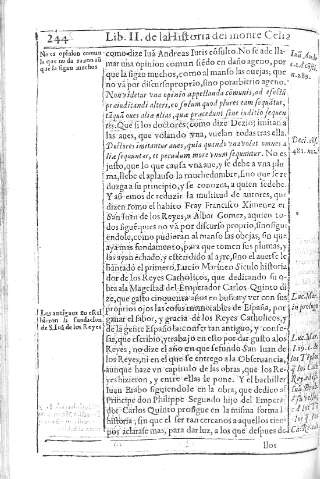 244 Lib. II. de la Historia del monte Celia
No es opinion comun
la que no da razon aũ
que la sigan muchos
como dize Iuã Andreas Iuris cõsulto. No se ade lla-
mar una opinion comun siẽdo en daño ageno, por
que la sigã muchos, como al manso las ovejas; que
no vã por discurso proprio, sino por arbitrio ageno.
Non videtur vna opinio appellanda communis, ad effectũ
præiudicandi alteri, ex solum quod plures eam sequãtur,
tãquã oues alia alias, quæ præcedunt sine iuditio sequen-
tes. Que si los doctores, como dize Decio, imitan a
las aues, que volando vna, vuelan todas tras ella.
Doctores instantur aues, quia quando una volat omnes a
lia sequuntur, et secundum more unum sequuntur. No es
justo, que lo que causa vna aue, y se debe a vna plu
ma, lleue el aplauso la muchedumbre, sino que se re
duzga a su principio, y se conozca, a quien se debe.
Y assi emos de reduzir la multitud de autores, que
dizen como el habito Fray Francisco Ximenez en
San Iuan de los Reyes, a Albar Gomez, aquien to-
dos siguẽ, pues no vã por discurso proprio, sino sigui
endole, como pudieran al manso las ovejas, sin que
aya mas fundamento, para que tomen sus plumas, y
las ayan echado, y estẽdido al ayre, sino el auerse le
bantado el primero. Lucio Marineo Siculo historia
dor de los Reyes Catholicos, que dedicando su o-
bra ala Magestad del Emperador Carlos Quinto di
ze, que gasto cinquenta años en buscar y ver con sus
proprios ojos las cosas memorables de España, por
ganar el fabor, y gracia de los Reyes Catholicos, y
de la gente Española: conser tan antiguo, y confe-
sar, que escribio, y trabajo en ello por dar gusto a los
Reyes, no dize el año en que se fundo San Iuan de
los Reyes, ni en el que se entrego a la Obseruancia,
aunque haze vn capitulo de las obras, que los Re-
yes hizieron, y entre ellas la pone. Y el bachiller
Iuan Brabo siguiendole en la obra, que dedico al
Principe don Philippe Segundo hijo del Empera-
dor Carlos Quinto prosigue en la misma forma la
historia, sin que el ser tan cercanos a aquellos tiem-
pos aclarase mas, para dar luz, a los que despues de
Los antiguos no escri
bieron la fundacion
de S. Iuã de los Reyes
Luc. Mar.
in prologo
Luc. Mar.
llos